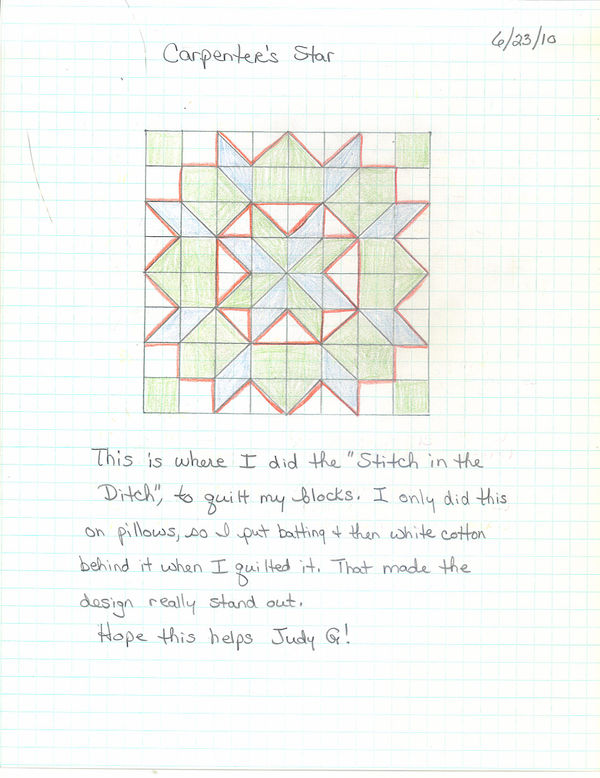 6/23/10
Carpenter's Star
This is where I did the "Stitch in the
Ditch", to quilt my blocks. I only did this
on pillows, so I put batting + then white cotton
behind it when I quilted it. That made the
design really stand out.
Hope this helps Judy G!